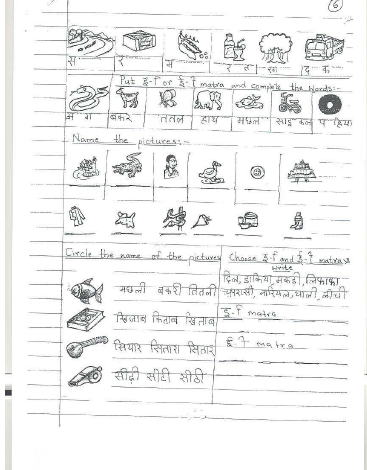 6
Put इ-ि or ई-ी matra and complete the words:-
बकर ततल हाथ मछल साइ कल प हिया
Name the pictures:-
Circle the name of the pictures
Choose इ-ि and ई-ी matras
write
मछली बकरी तितली
दिन, डाकिया, मकड़ी, लिफाफा
चपरासी, नारियल, थाली, लीची
इ-ि matra
किताब खिताब
ई ी matra
सियार सितारा सितार
सीढ़ी सीटी सीठी